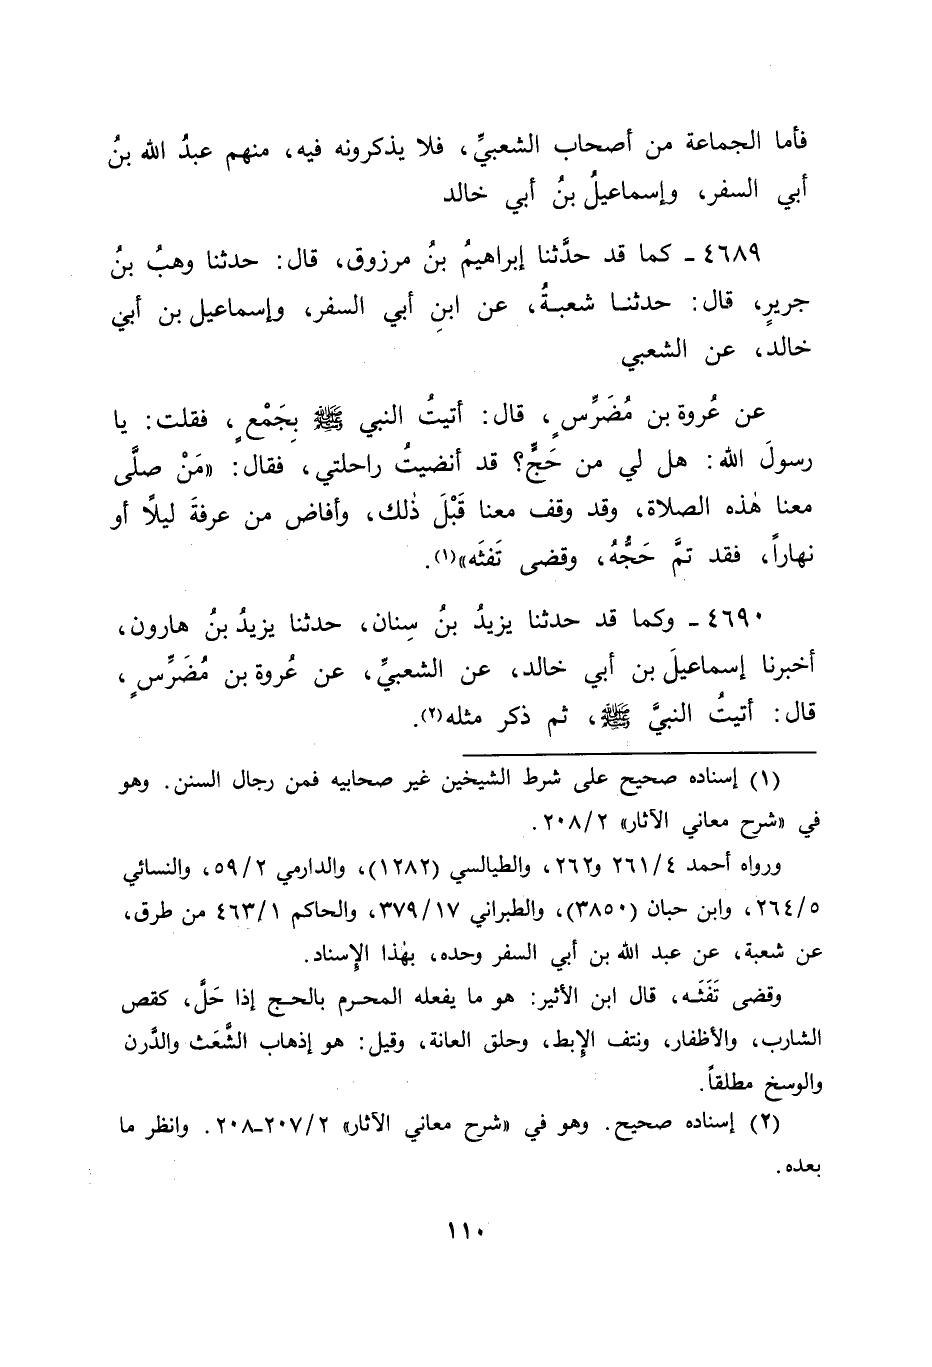 فأما الجماعة من أصحاب الشعبيِّ، فلا يذكرونه فيه، منهم عبدُ الله بنُ
أبي السفر، وإسماعيلُ بنُ أبي خالد
٤٦٨٩ ـ كما قد حدَّثنا إبراهيمُ بنُ مرزوق، قال: حدثنا وهبُ بنُ
جريرٍ، قال: حدثنـا شعبـةُ، عن ابنِ أبي السفر، وإسماعيل بن أبي
خالد، عن الشعبي
عن عُروة بن مُضَرِّسٍ، قال: أتيتُ النبي ﷺ بِجَمْعٍ، فقلت: يا
رسولَ الله: هل لي من حَجٍّ؟ قد أنضيتُ راحلتي، فقال: «مَنْ صلَّى
معنا هٰذه الصلاة، وقد وقف معنا قَبْلَ ذٰلك، وأفاض من عرفةَ ليلًا أو
نهاراً، فقد تمَّ حَجُّهُ، وقضى تَفثَه»(١).
٤٦٩٠ ـ وكما قد حدثنا يزيدُ بنُ سِنان، حدثنا يزيدُ بنُ هارون،
أخبرنا إسماعيلَ بن أبي خالد، عن الشعبيِّ، عن عُروة بن مُضَرِّسٍ،
قال: أتيتُ النبيَّ ﷺ، ثم ذكر مثله(٢).
(١) إسناده صحيح على شرط الشيخين غير صحابيه فمن رجال السنن. وهو
في «شرح معاني الآثار» ٢٠٨/٢.
ورواه أحمد ٢٦١/٤ و٢٦٢، والطيالسي (١٢٨٢)، والدارمي ٥٩/٢، والنسائي
٢٦٤/٥، وابن حبان (٣٨٥٠)، والطبراني ٣٧٩/١٧، والحاكم ٤٦٣/١ من طرق،
عن شعبة، عن عبد الله بن أبي السفر وحده، بهٰذا الإسناد.
وقضى تَفَثَـه، قال ابن الأثير: هو ما يفعله المحرم بالحج إذا حَلَّ، كقص
الشارب، والأظفار، ونتف الإبط، وحلق العانة، وقيل: هو إذهاب الشَّعَث والدَّرن
والوسخ مطلقاً.
(٢) إسناده صحيح. وهو في «شرح معاني الآثار» ٢٠٧/٢ـ٢٠٨. وانظر ما
بعده.
١١٠